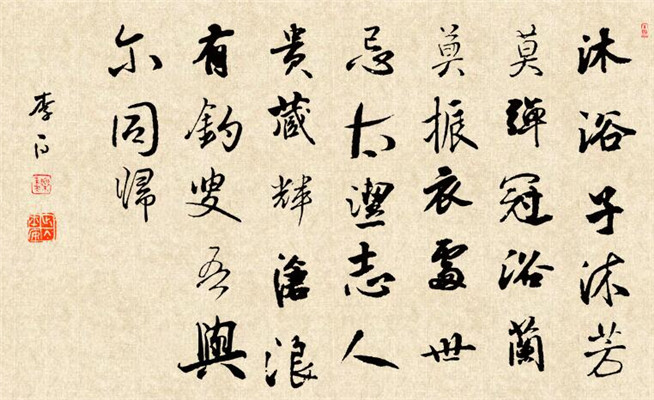 沐浴子沐芳
莫彈冠浴蘭
莫振衣處世
忌太潔志人
貴藏輝滄浪
有釣叟吾與
尔同歸
李白